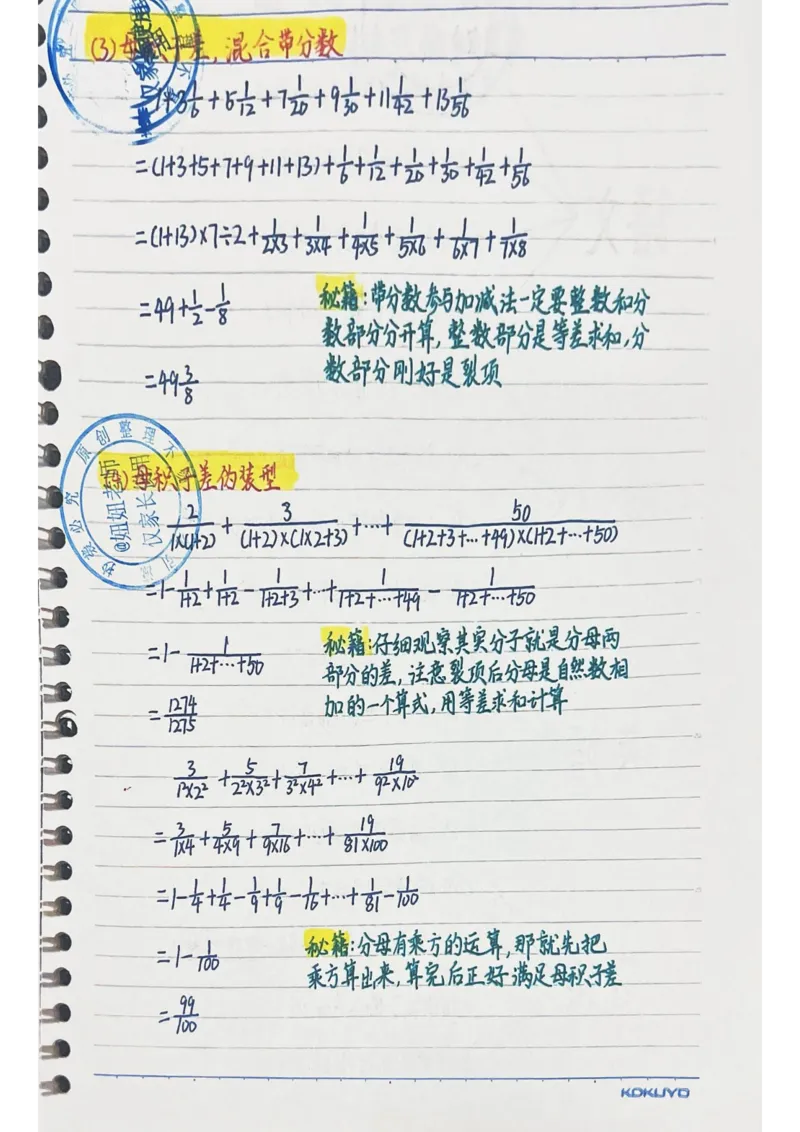 (3)母积子差,混合带分数
1+3 1/6+5 1/12+7 1/20+9 1/30+11 1/42+13 1/56
=(1+3+5+7+9+11+13)+1/6+1/12+1/20+1/30+1/42+1/56
=(1+13)×7÷2+1/2×3+1/3×4+1/4×5+1/5×6+1/6×7+1/7×8
=49+1/2-1/8
秘籍:带分数参与加减法一定要整数和分
数部分分开算,整数部分是等差求和,分
数部分刚好是裂项
=49 3/8
原创整理不
必究
@妞妞老师
仅家长
(4)母积子差伪装型
2/1×(1+2)+3/(1+2)×(1×2+3)+…+50/(1+2+3+…+49)×(1+2+…+50)
=1-1/1+2+1/1+2-1/1+2+3+…+1/1+2+…+49-1/1+2+…+50
=1-1/1+2+…+50
秘籍:仔细观察其实分子就是分母两
部分的差,注意裂项后分母是自然数相
加的一个算式,用等差求和计算
=1274/1275
3/1²×2²+5/2²×3²+7/3²×4²+…+19/9²×10²
=3/1×4+5/4×9+7/9×16+…+19/81×100
=1-1/4+1/4-1/9+1/9-1/16+…+1/81-1/100
=1-1/100
秘籍:分母有乘方的运算,那就先把
乘方算出来,算完后正好满足母积子差
=99/100
KOKUYO